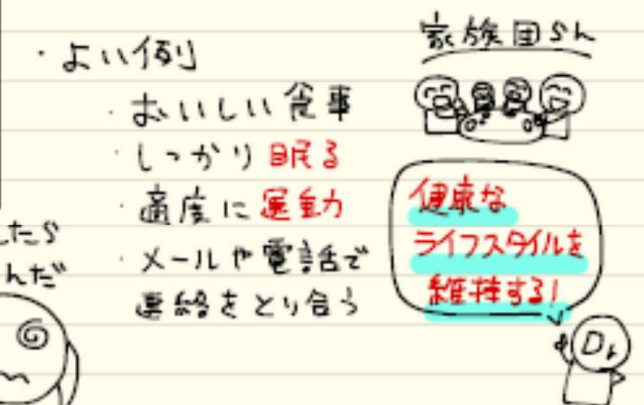 ・よい例
・おいしい食事
・しっかり眠る
・適度に運動
・メールや電話で
連絡をとり合う
家族団らん
健康な
ライフスタイルを
維持する!
Dr
たら
んだ